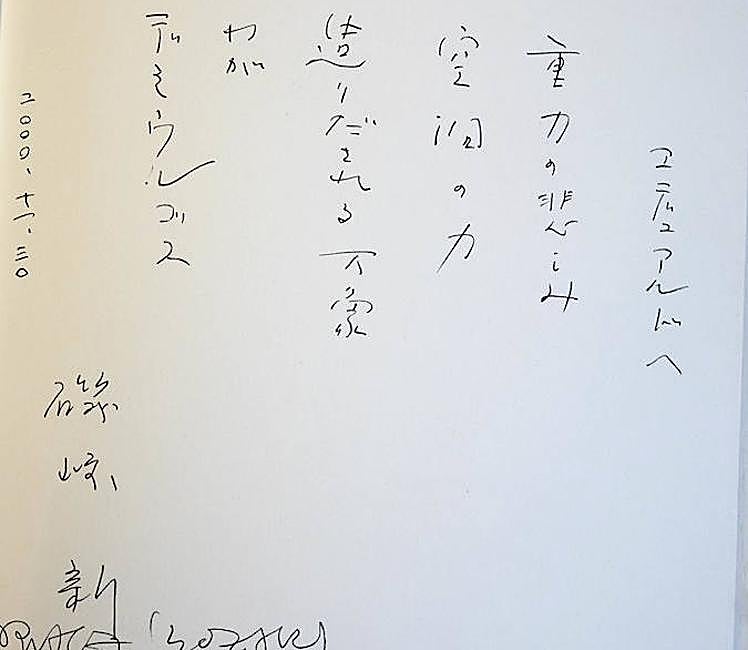 エデュアルドへ
重力の悲しみ
空洞の力
造りだされる万象
わが
デミウルゴス
二〇〇〇、十一、三〇
磯崎 新
ARATA ISOZAKI